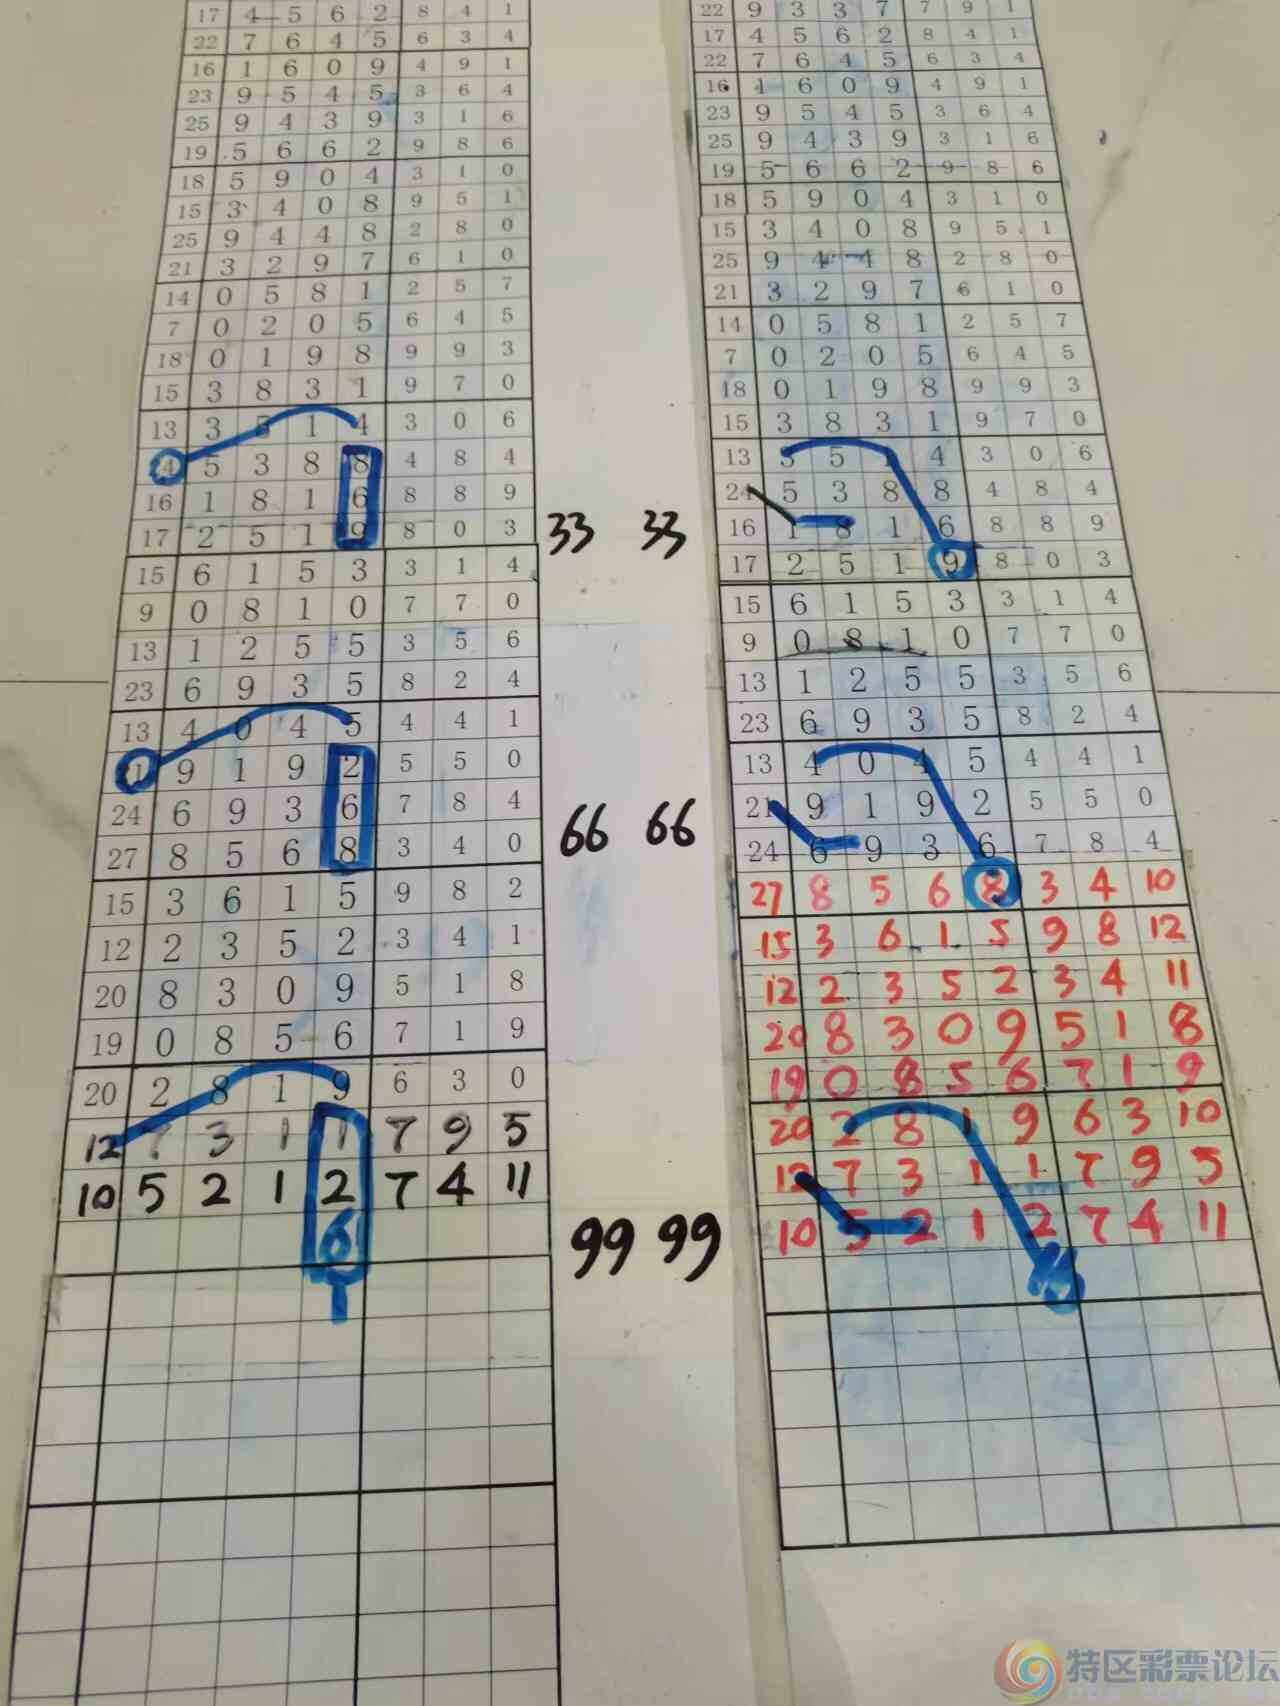 17 4 5 6 2 8 4 1
22 7 6 4 5 6 3 4
16 1 6 0 9 4 9 1
23 9 5 4 5 3 6 4
25 9 4 3 9 3 1 6
19 5 6 6 2 9 8 6
18 5 9 0 4 3 1 0
15 3 4 0 8 9 5 1
25 9 4 4 8 2 8 0
21 3 2 9 7 6 1 0
14 0 5 8 1 2 5 7
7 0 2 0 5 6 4 5
18 0 1 9 8 9 9 3
15 3 8 3 1 9 7 0
13 3 5 1 4 3 0 6
5 3 8 8 4 8 4
16 1 8 1 6 8 8 9
17 2 5 1 9 8 0 3
15 6 1 5 3 3 1 4
9 0 8 1 0 7 7 0
13 1 2 5 5 3 5 6
23 6 9 3 5 8 2 4
13 4 0 4 5 4 4 1
9 1 9 2 5 5 0
24 6 9 3 6 7 8 4
27 8 5 6 8 3 4 0
15 3 6 1 5 9 8 2
12 2 3 5 2 3 4 1
20 8 3 0 9 5 1 8
19 0 8 5 6 7 1 9
20 2 8 1 9 6 3 0
12 7 3 1 1 7 9 5
10 5 2 1 2 7 4 11
6
33 33
66 66
99 99
22 9 3 3 7 7 9 1
17 4 5 6 2 8 4 1
22 7 6 4 5 6 3 4
16 1 6 0 9 4 9 1
23 9 5 4 5 3 6 4
25 9 4 3 9 3 1 6
19 5 6 6 2 9 8 6
18 5 9 0 4 3 1 0
15 3 4 0 8 9 5 1
25 9 4 4 8 2 8 0
21 3 2 9 7 6 1 0
14 0 5 8 1 2 5 7
7 0 2 0 5 6 4 5
18 0 1 9 8 9 9 3
15 3 8 3 1 9 7 0
13 3 5 1 4 3 0 6
24 5 3 8 8 4 8 4
16 1 8 1 6 8 8 9
17 2 5 1 9 8 0 3
15 6 1 5 3 3 1 4
9 0 8 1 0 7 7 0
13 1 2 5 5 3 5 6
23 6 9 3 5 8 2 4
13 4 0 4 5 4 4 1
21 9 1 9 2 5 5 0
24 6 9 3 6 7 8 4
27 8 5 6 8 3 4 10
15 3 6 1 5 9 8 12
12 2 3 5 2 3 4 11
20 8 3 0 9 5 1 8
19 0 8 5 6 7 1 9
20 2 8 1 9 6 3 10
12 7 3 1 1 7 9 5
10 5 2 1 2 7 4 11
特区彩票论坛